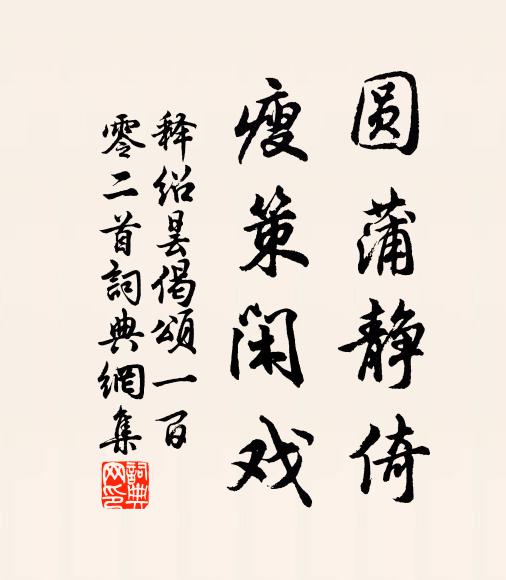 圆蒲静倚
瘦策闲戏
释绍昙偈颂一百
零二首詞典網集
詞典网印